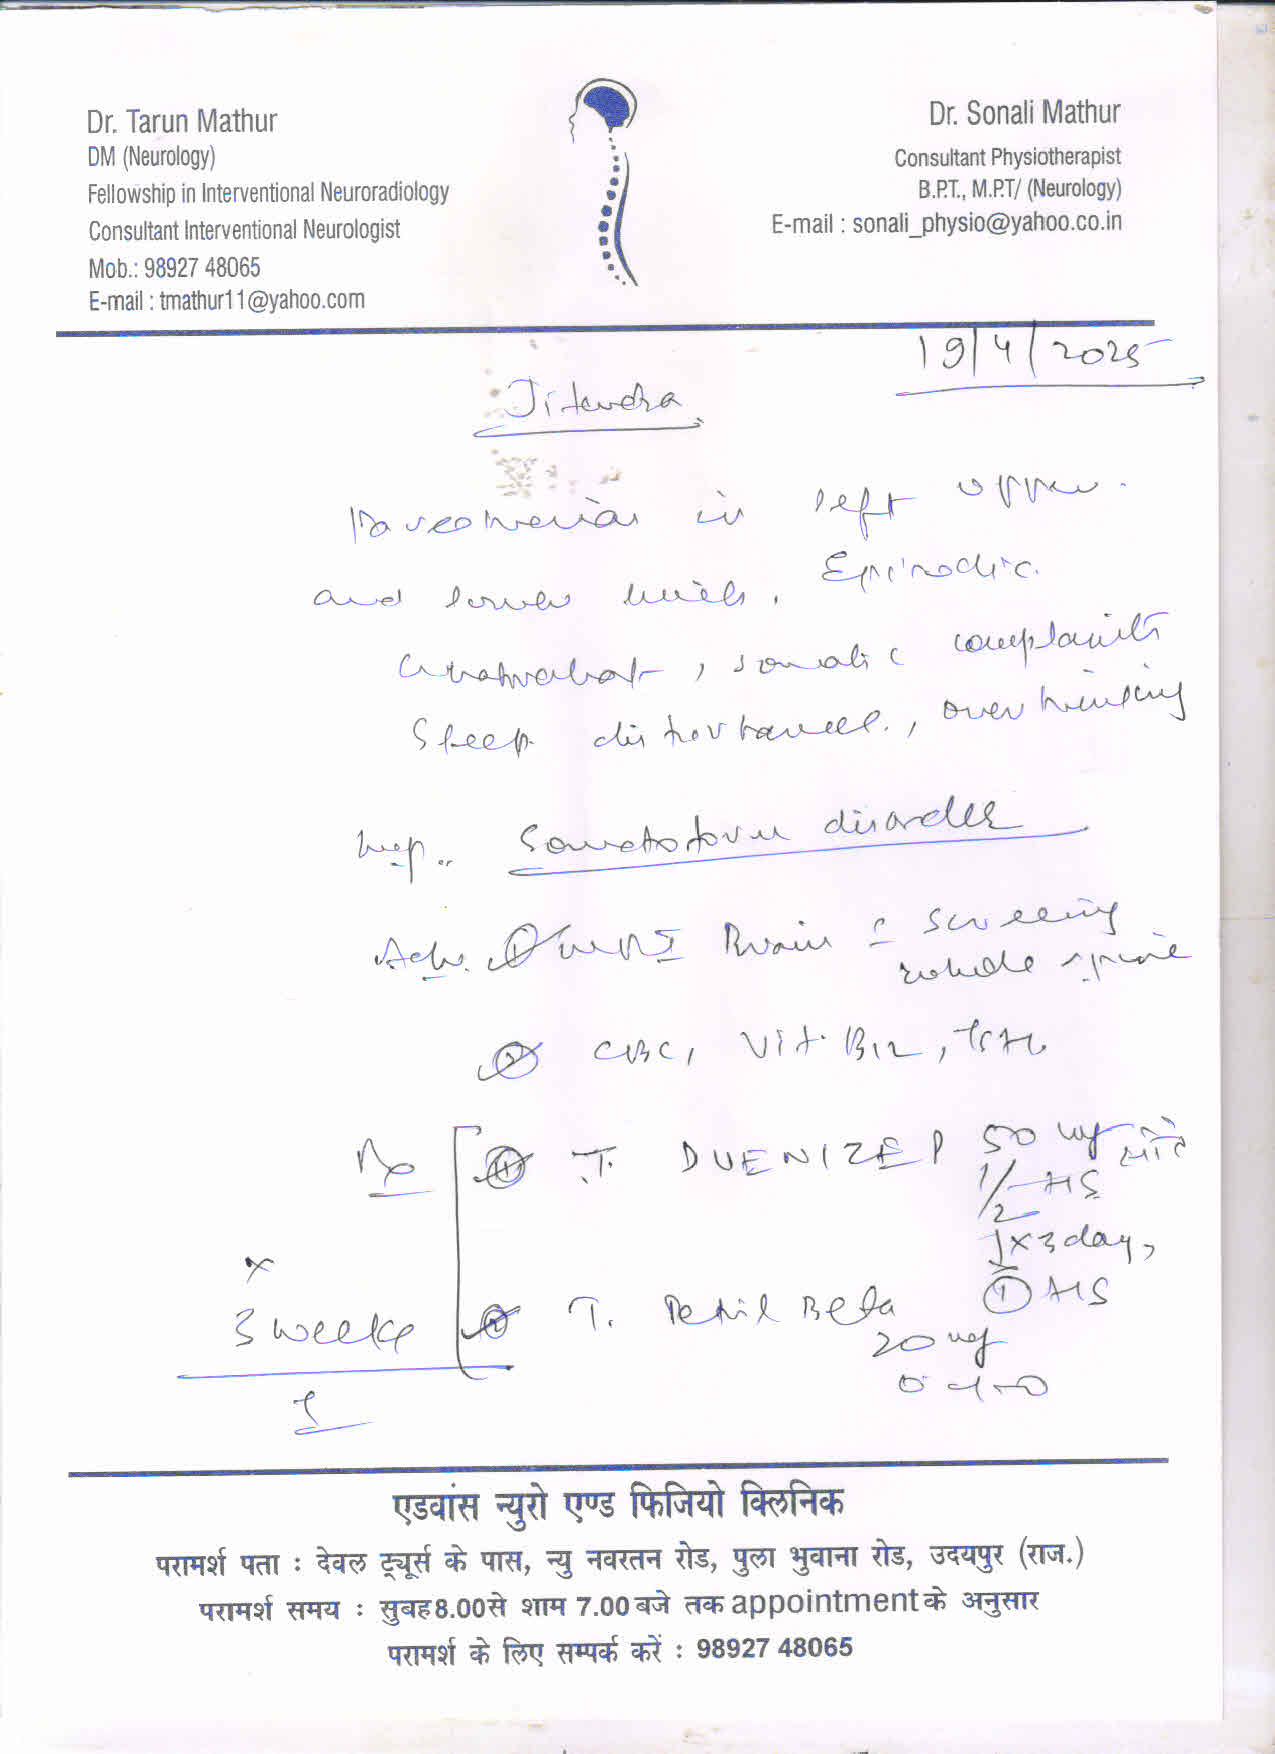 Dr. Tarun Mathur
DM (Neurology)
Fellowship in Interventional Neuroradiology
Consultant Interventional Neurologist
Mob.: 98927 48065
E-mail : tmathur11@yahoo.com
Dr. Sonali Mathur
Consultant Physiotherapist
B.P.T., M.P.T/ (Neurology)
E-mail : sonali_physio@yahoo.co.in
19/4/2025
Jitendra
Paresthesias in left upper
and lower limbs. Episodic
Ghabrahat, somatic complaints
Sleep disturbances, overthinking
Imp. Somatoform disorder
Adv. ① MRI Brain c̄ screening
whole spine
② CBC, Vit B12, TSH
Rx ① T. DUENIZEP 50 mg
1/2 HS
↓ x 3 days
① HS
x
3 weeks ② T. Beta
20 mg
एडवांस न्युरो एण्ड फिजियो क्लिनिक
परामर्श पता : देवल ट्यूर्स के पास, न्यु नवरतन रोड, पुला भुवाना रोड, उदयपुर (राज.)
परामर्श समय : सुबह 8.00 से शाम 7.00 बजे तक appointment के अनुसार
परामर्श के लिए सम्पर्क करें : 98927 48065